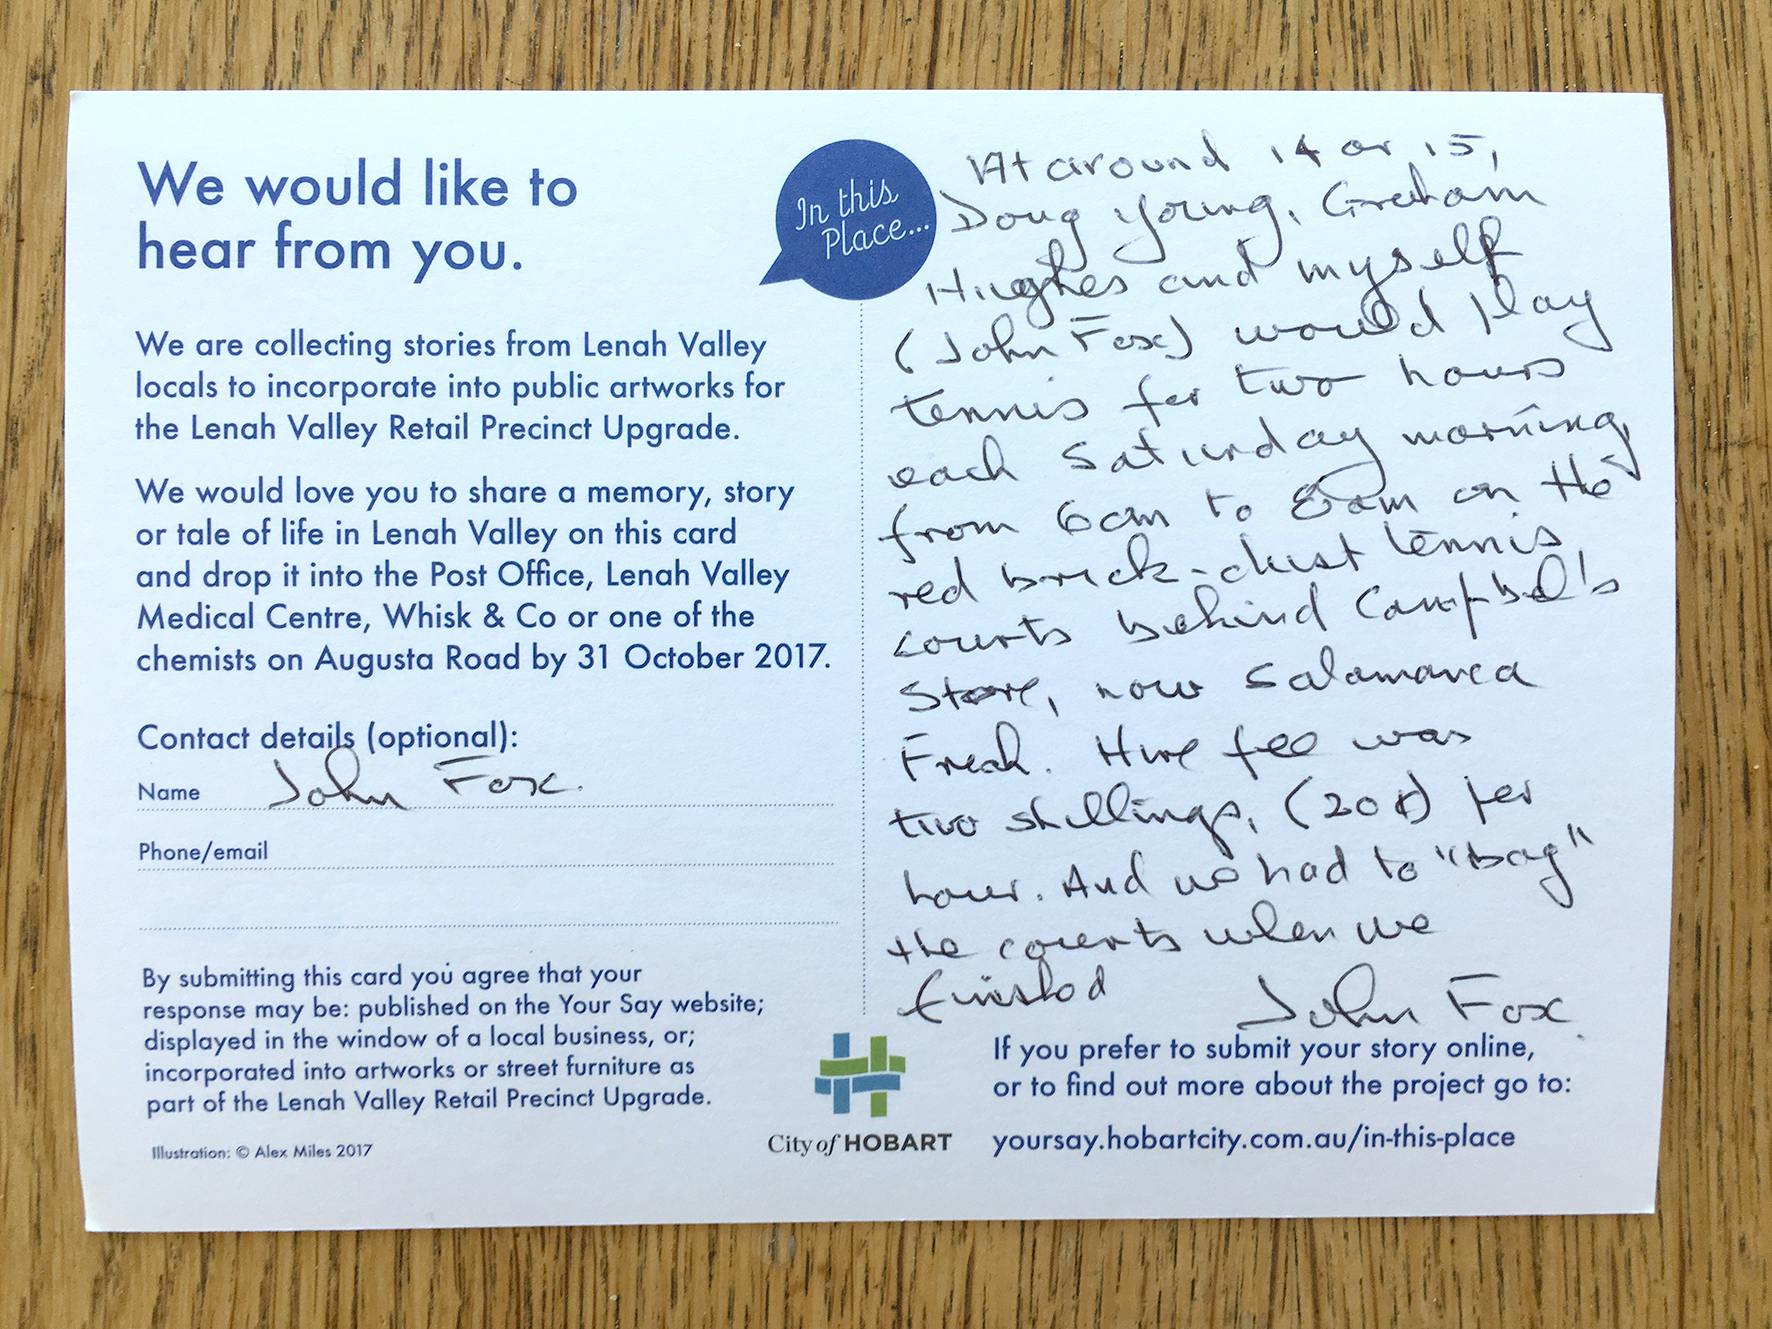 We would like to
hear from you.
We are collecting stories from Lenah Valley
locals to incorporate into public artworks for
the Lenah Valley Retail Precinct Upgrade.
We would love you to share a memory, story
or tale of life in Lenah Valley on this card
and drop it into the Post Office, Lenah Valley
Medical Centre, Whisk & Co or one of the
chemists on Augusta Road by 31 October 2017.
Contact details (optional):
Name John Fox.
Phone/email
By submitting this card you agree that your
response may be: published on the Your Say website;
displayed in the window of a local business, or;
incorporated into artworks or street furniture as
part of the Lenah Valley Retail Precinct Upgrade.
Illustration: © Alex Miles 2017
In this
Place...
At around 14 or 15,
Doug Young, Graham
Hughes and myself
(John Fox) would play
tennis for two hours
each Saturday morning,
from 6am to 8am on the
red brick-dust tennis
courts behind Campbel's
Store, now Salamanca
Fresh. Hire fee was
two shillings, (20¢) per
hour. And we had to "bag"
the courts when we
finished John Fox.
City of HOBART
If you prefer to submit your story online,
or to find out more about the project go to:
yoursay.hobartcity.com.au/in-this-place